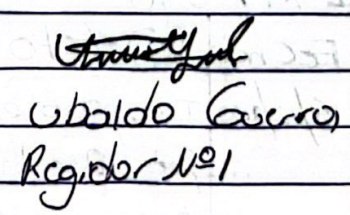 Ubaldo Guerra
Regidor Nº1